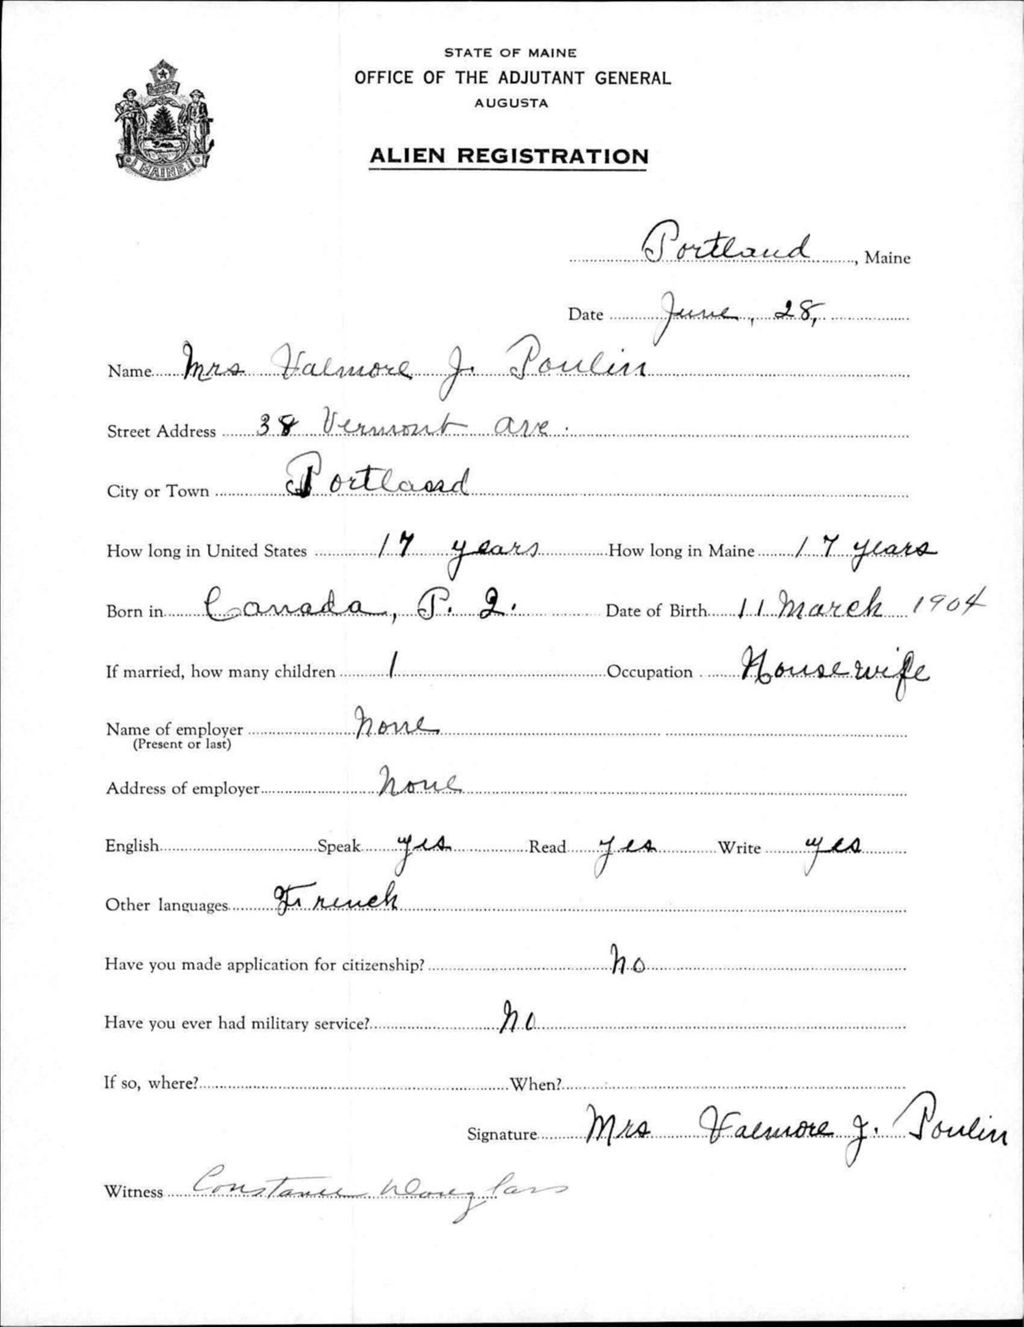 STATE OF MAINE
OFFICE OF THE ADJUTANT GENERAL
AUGUSTA
ALIEN REGISTRATION
MAINE
Portland, Maine
Date June, 28,
Name Mrs Valmore J. Poulin
Street Address 38 Vermont Ave.
City or Town Portland
How long in United States 17 years How long in Maine 17 years
Born in Canada, P. Q. Date of Birth 11 March 1904
If married, how many children 1 Occupation Housewife
Name of employer None
(Present or last)
Address of employer None
English Speak yes Read yes Write yes
Other languages French
Have you made application for citizenship? No
Have you ever had military service? No
If so, where? When?
Signature Mrs Valmore J. Poulin
Witness Constance Douglass